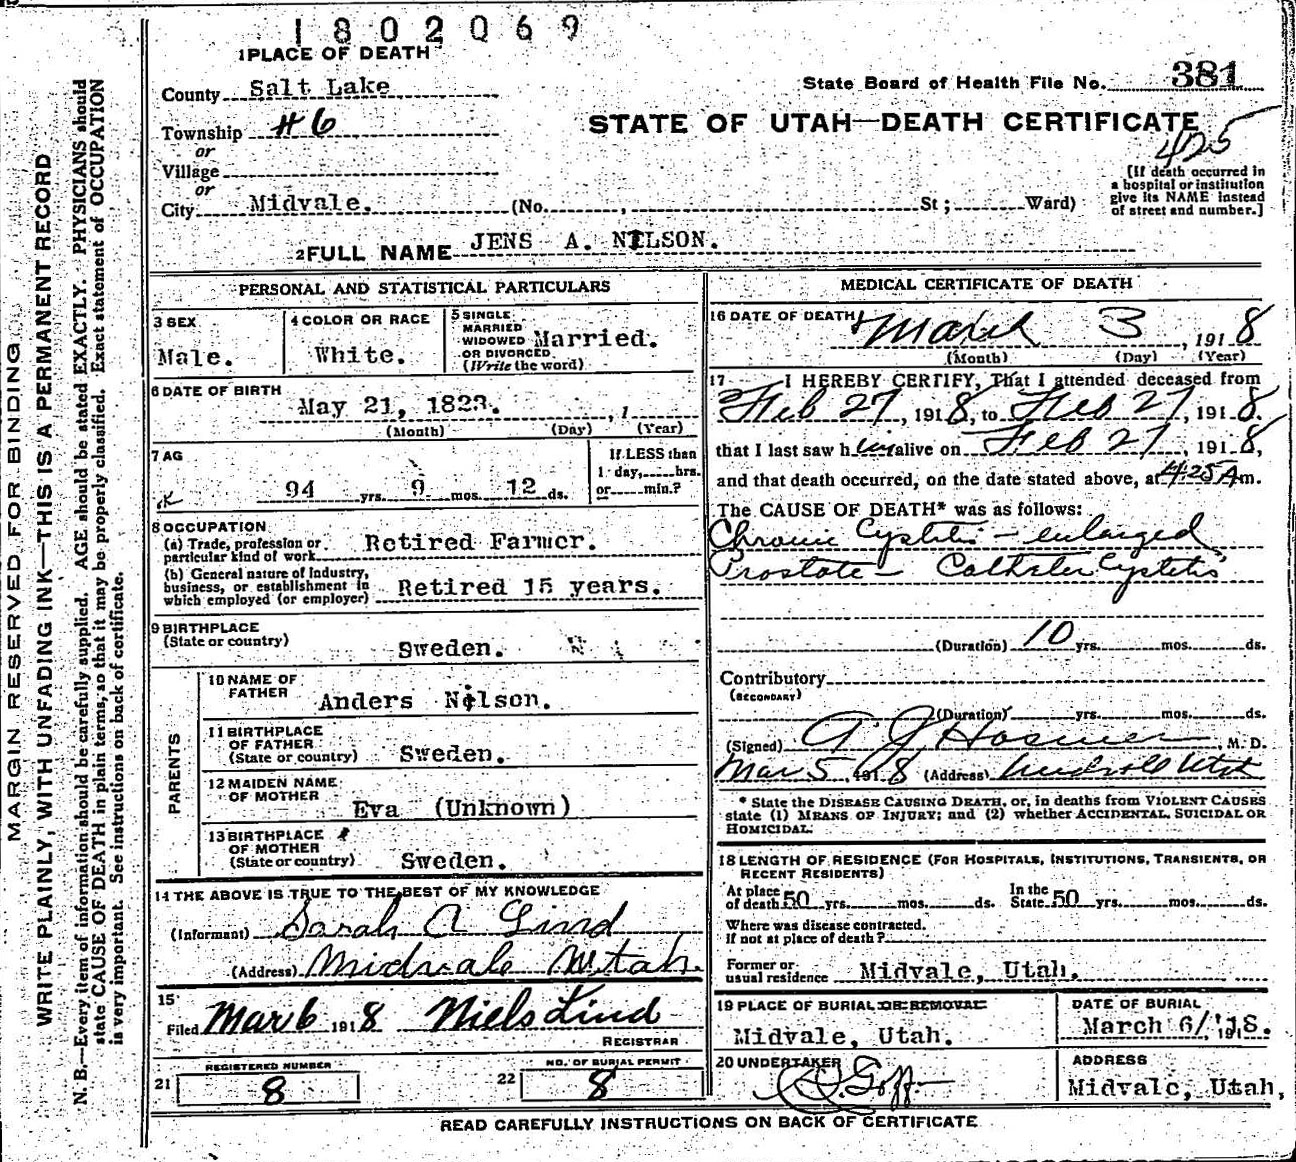 1802069
1 PLACE OF DEATH
County Salt Lake
State Board of Health File No. 381
Township #6
STATE OF UTAH—DEATH CERTIFICATE
425
or
Village
or
City Midvale. (No. , St ; Ward)
[If death occurred in
a hospital or institution
give its NAME instead
of street and number.]
2 FULL NAME JENS A. NILSON.
PERSONAL AND STATISTICAL PARTICULARS
3 SEX
Male.
4 COLOR OR RACE
White.
5 SINGLE
MARRIED
WIDOWED
OR DIVORCED
(Write the word)
Married.
6 DATE OF BIRTH
May 21, 1823. , 1
(Month) (Day) (Year)
7 AG
94 yrs. 9 mos. 12 ds.
If LESS than
1 day, hrs.
or min.?
8 OCCUPATION
(a) Trade, profession or
particular kind of work Retired Farmer.
(b) General nature of Industry,
business, or establishment in
which employed (or employer) Retired 15 years.
9 BIRTHPLACE
(State or country) Sweden.
PARENTS
10 NAME OF
FATHER Anders Nilson.
11 BIRTHPLACE
OF FATHER
(State or country) Sweden.
12 MAIDEN NAME
OF MOTHER Eva (Unknown)
13 BIRTHPLACE
OF MOTHER
(State or country) Sweden.
14 THE ABOVE IS TRUE TO THE BEST OF MY KNOWLEDGE
(Informant) Sarah A Lind
(Address) Midvale Utah.
15
Filed Mar 6 1918 Niels Lind
REGISTRAR
REGISTERED NUMBER
21 8
NO. OF BURIAL PERMIT
22 8
MEDICAL CERTIFICATE OF DEATH
16 DATE OF DEATH
March 3 , 1918
(Month) (Day) (Year)
17 I HEREBY CERTIFY, That I attended deceased from
Feb 27, 1918, to Feb 27, 1918.
that I last saw h im alive on Feb 27, 1918,
and that death occurred, on the date stated above, at 4:25 A m.
The CAUSE OF DEATH* was as follows:
Chronic Cystitis – enlarged
Prostate – Catheter Cystitis
(Duration) 10 yrs. mos. ds.
Contributory
(SECONDARY)
(Duration) yrs. mos. ds.
(Signed) A J Hosmer, M. D.
Mar 5, 1918 (Address) Midvale Utah
* State the DISEASE CAUSING DEATH, or, in deaths from VIOLENT CAUSES
state (1) MEANS OF INJURY; and (2) whether ACCIDENTAL, SUICIDAL OR
HOMICIDAL.
18 LENGTH OF RESIDENCE (FOR HOSPITALS, INSTITUTIONS, TRANSIENTS, OR
RECENT RESIDENTS)
At place
of death 50 yrs. mos. ds.
In the
State 50 yrs. mos. ds.
Where was disease contracted.
If not at place of death?
Former or
usual residence Midvale, Utah.
19 PLACE OF BURIAL OR REMOVAL
Midvale, Utah.
DATE OF BURIAL
March 6/'18. 191
20 UNDERTAKER
Goff
ADDRESS
Midvale, Utah,
READ CAREFULLY INSTRUCTIONS ON BACK OF CERTIFICATE
MARGIN RESERVED FOR BINDING
WRITE PLAINLY, WITH UNFADING INK—THIS IS A PERMANENT RECORD
N. B.—Every item of information should be carefully supplied. AGE should be stated EXACTLY. PHYSICIANS should
state CAUSE OF DEATH in plain terms, so that it may be properly classified. Exact statement of OCCUPATION
is very important. See instructions on back of certificate.